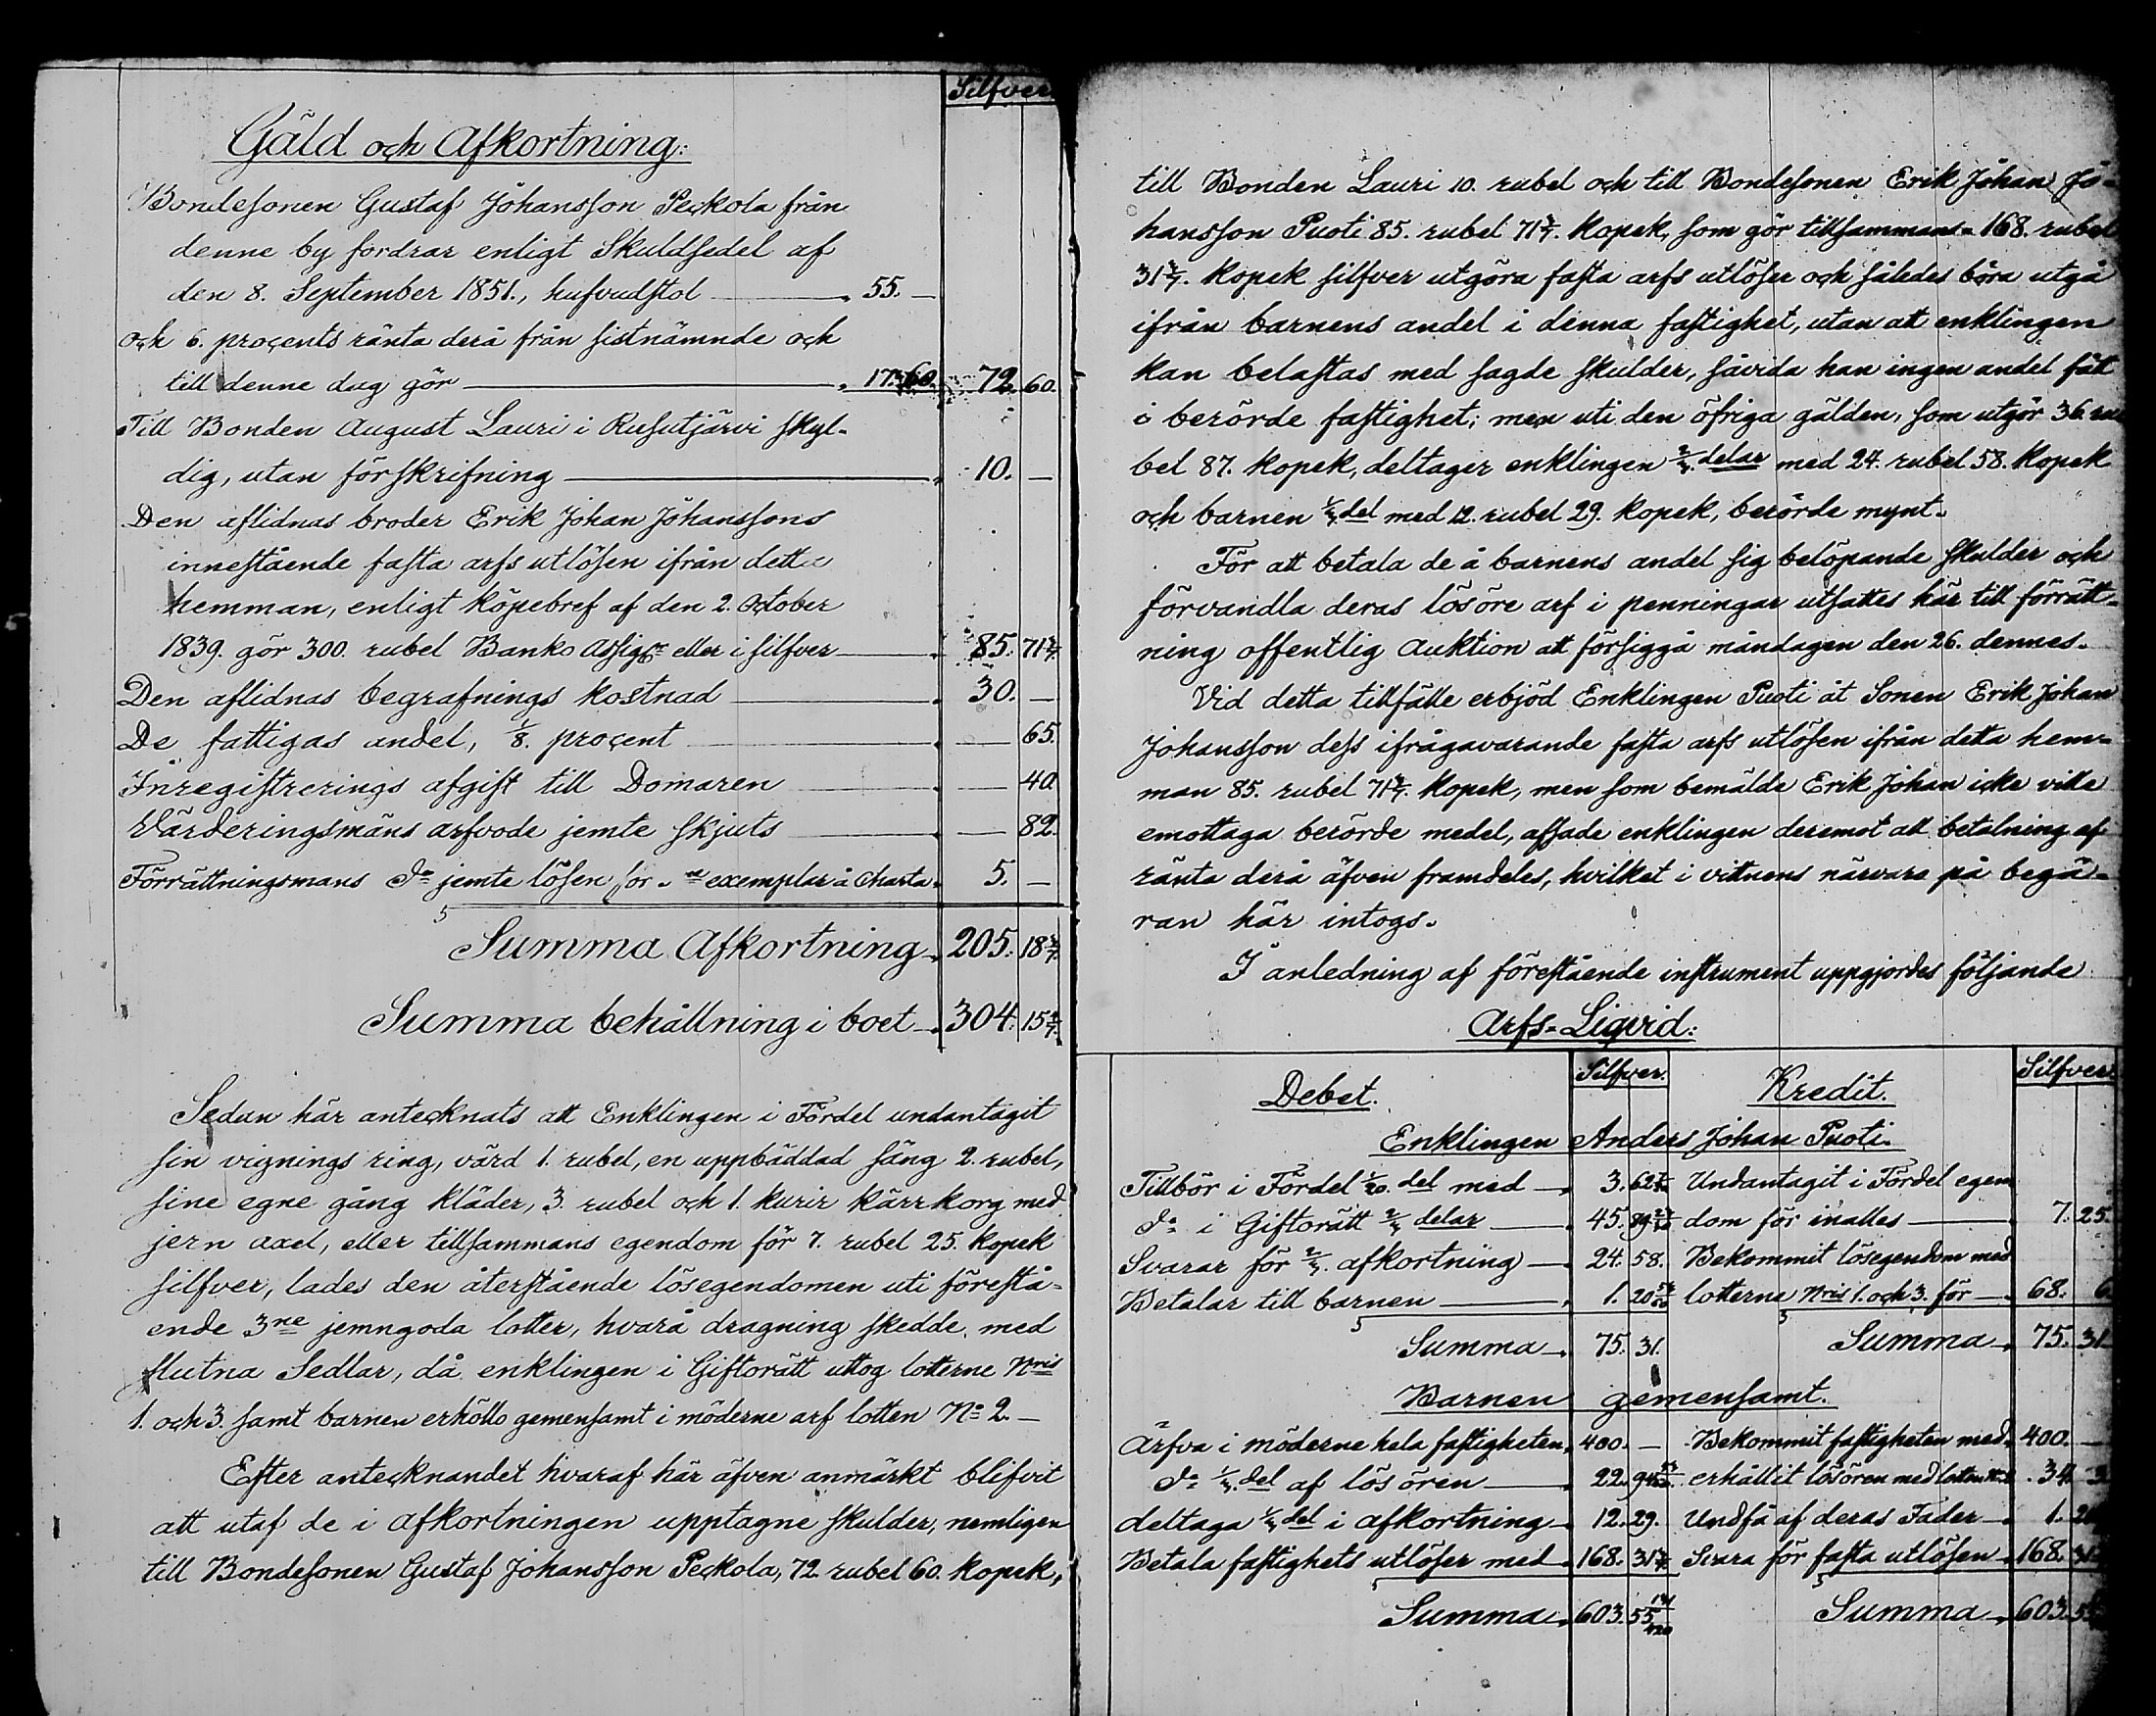 Silfver.
Gäld och Afkortning:
Bondesonen Gustaf Johansson Peckola från
denne by fordrar enligt Skuldsedel af
den 8. September 1851., hufvudstol 55. —
och 6. procents ränta derå från sistnämnde och
till denne dag gör 17. 60. 72. 60.
Till Bonden August Lauri i Rusutjärvi skyl-
dig, utan förskrifning 10. —
Den aflidnas broder Erik Johan Johanssons
innestående fasta arfs utlösen ifrån detta
hemman, enligt köpebref af den 2. October
1839. gör 300. rubel Banko Assig:r eller i silfver 85. 71 3/7.
Den aflidnas begrafnings kostnad 30. —
De fattigas andel, 1/8. procent — 65.
Inregistrerings afgift till Domaren — 40.
Värderingsmäns arfvode jemte skjuts — 82.
Förrättningsmans D:o jemte lösen för exemplar å Charta 5. —
Summa Afkortning 205. 18 3/7.
Summa behållning i boet 304. 15 4/7.
Sedan här antecknats att Enklingen i Fördel undantagit
sin vignings ring, värd 1. rubel, en uppbäddad säng 2. rubel,
sine egne gång kläder, 3. rubel och 1. kurir kärrkorg med
jern axel, eller tillsammans egendom för 7. rubel 25. kopek
silfver, lades den återstående lösegendomen uti förestå-
ende 3ne jemngoda lotter, hvarå dragning skedde med
slutna Sedlar, då enklingen i Giftorätt uttog lotterne Nris
1. och 3. samt barnen erhöllo gemensamt i möderne arf lotten No 2. —
Efter antecknandet hvaraf här äfven anmärkt blifvit
att utaf de i afkortningen upptagne skulder, nemligen
till Bondesonen Gustaf Johansson Peckola, 72 rubel 60. kopek,
till Bonden Lauri 10. rubel och till Bondesonen Erik Johan Jo-
hansson Puoti 85. rubel 71 3/7. kopek, som gör tillsammans 168. rubel
31 3/7. kopek silfver utgöra fasta arfs utlöser och således böra utgå
ifrån barnens andel i denna fastighet, utan att enklingen
kan belastas med sagde skulder, såvida han ingen andel fått
i berörde fastighet; men uti den öfriga gälden, som utgör 36 ru
bel 87. kopek, deltager enklingen 2/3 delar med 24. rubel 58. kopek
och barnen 1/3 del med 12. rubel 29. kopek, berörde mynt.
För att betala de å barnens andel sig belöpande skulder och
förvandla deras lösöre arf i penningar utsattes här till förrätt-
ning offentlig Auktion att försiggå måndagen den 26. dennes.
Vid detta tillfälle erbjöd Enklingen Puoti åt Sonen Erik Johan
Johansson dess ifrågavarande fasta arfs utlösen ifrån detta hem-
man 85. rubel 71 3/7. kopek, men som bemälde Erik Johan icke ville
emottaga berörde medel, afsade enklingen deremot att betalning af
ränta derå äfven framdeles, hvilket i vittnens närvaro på begä-
ran här intogs.
I anledning af förestående instrument uppgjordes följande
Arfs-Liqvid:
Debet. Silfver. Kredit. Silfver.
Enklingen Anders Johan Puoti.
Tillbör i Fördel 1/20. del med 3. 62 Undantagit i Fördel egen
D:o i Giftorätt 2/3 delar 45. 89 dom för inalles 7. 25.
Svarar för 2/3. afkortning 24. 58. Bekommit lösegendom med
Betalar till barnen 1. 20 lotterne Nris 1. och 3. för 68. 6
Summa 75. 31. Summa 75. 31
Barnen gemensamt.
Ärfva i möderne hela fastigheten 400. — Bekommit fastigheten med 400. —
D:o 1/3. del af lösören 22. 94 erhållit lösören med lotten 34.
deltaga 1/3 del i afkortning 12. 29. Undfå af deras Fader 1. 20
Betala fastighets utlöser med 168. 31 3/7 Svara för fasta utlösen 168. 31
Summa 603. 55 131/420 Summa 603. 55